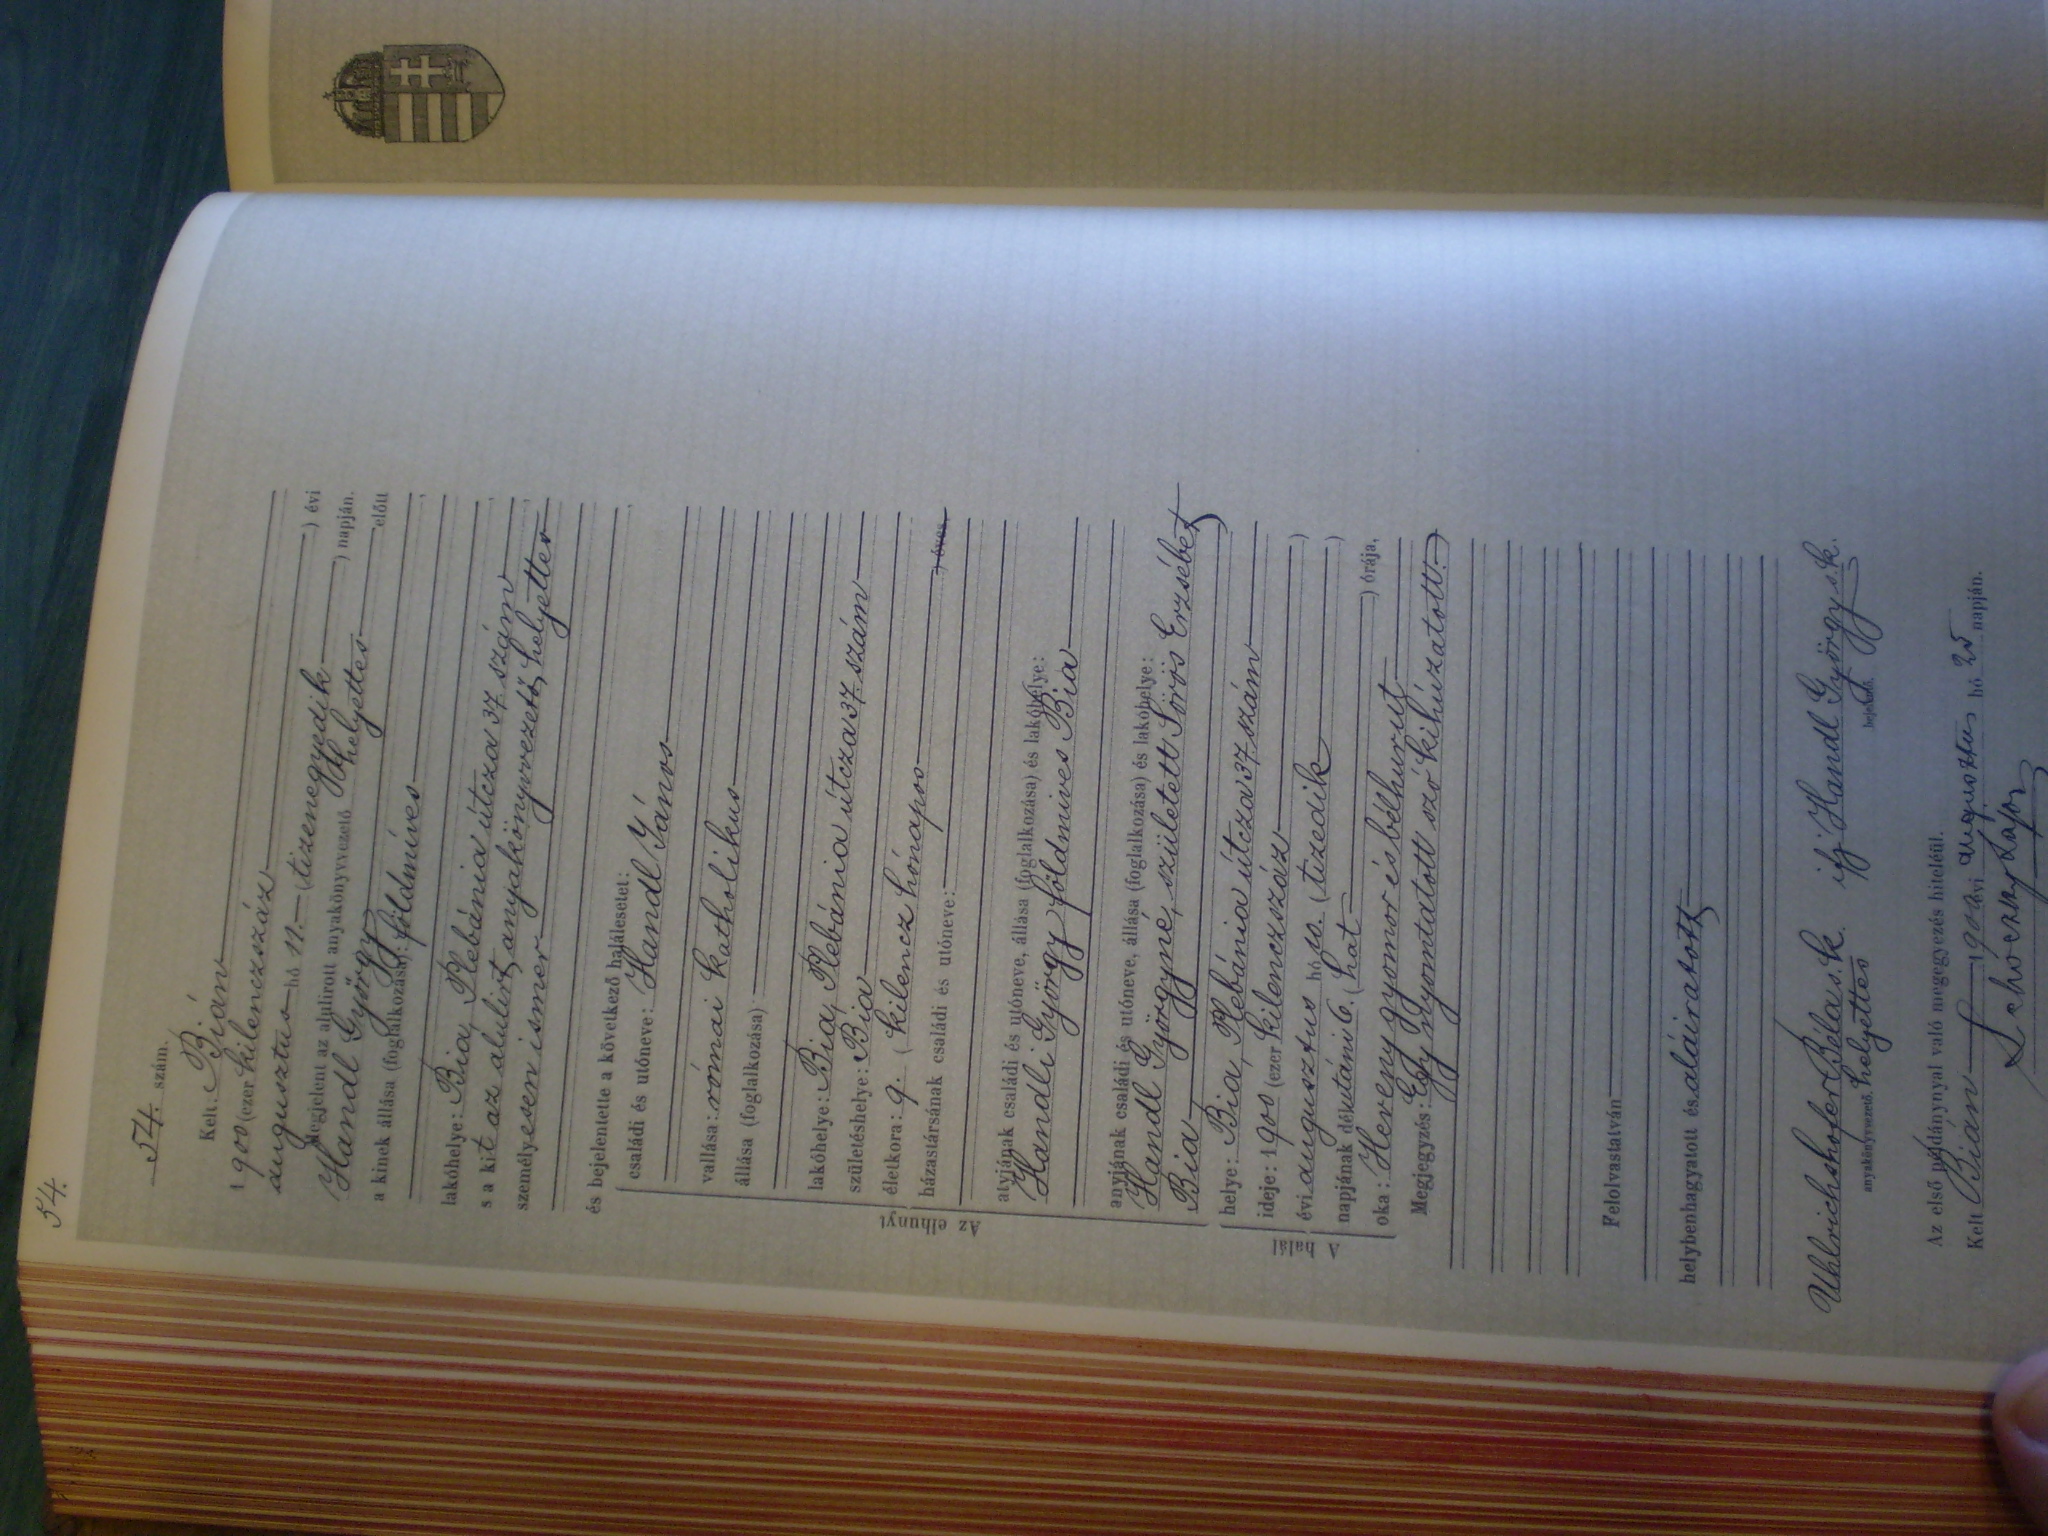 54.
54. szám.
Kelt: Bián
1900 (ezer kilenczszáz ) évi
augusztus hó 11. (tizenegyedik ) napján.
Megjelent az alulirott anyakönyvvezető helyettes előtt
Handl György
a kinek állása (foglalkozása): földmíves
lakóhelye: Bia, Plebánia útcza 37 szám
s a kit az alulirt anyakönyvvezető helyettes
személyesen ismer
és bejelentette a következő halálesetet:
Az elhunyt
családi és utóneve: Handl János
vallása: római katholikus
állása (foglalkozása):
lakóhelye: Bia, Plebánia útcza 37. szám
születéshelye: Bia
életkora: 9. (kilencz hónapos ) éves,
házastársának családi és utóneve:
atyjának családi és utóneve, állása (foglalkozása) és lakóhelye:
Handli György földmíves Bia
anyjának családi és utóneve, állása (foglalkozása) és lakóhelye:
Handl Györgyné, született Sörös Erzsébet
Bia
A halál
helye: Bia, Plebánia útcza 37 szám
ideje: 1900 (ezer kilenczszáz )
évi augusztus hó 10. (tizedik )
napjának délutáni 6. (hat ) órája,
oka: Heveny gyomor és bélhurut
Megjegyzés: Egy nyomtatott szó kihúzatott.
Felolvastatván
helybenhagyatott és aláiratott
Uhlrichshofer Béla s.k. ifj Handl György s.k.
anyakönyvvezető helyettes bejelentő.
Az első példánynyal való megegyezés hiteléül.
Kelt Bián 1900 évi augusztus hó 25 napján.